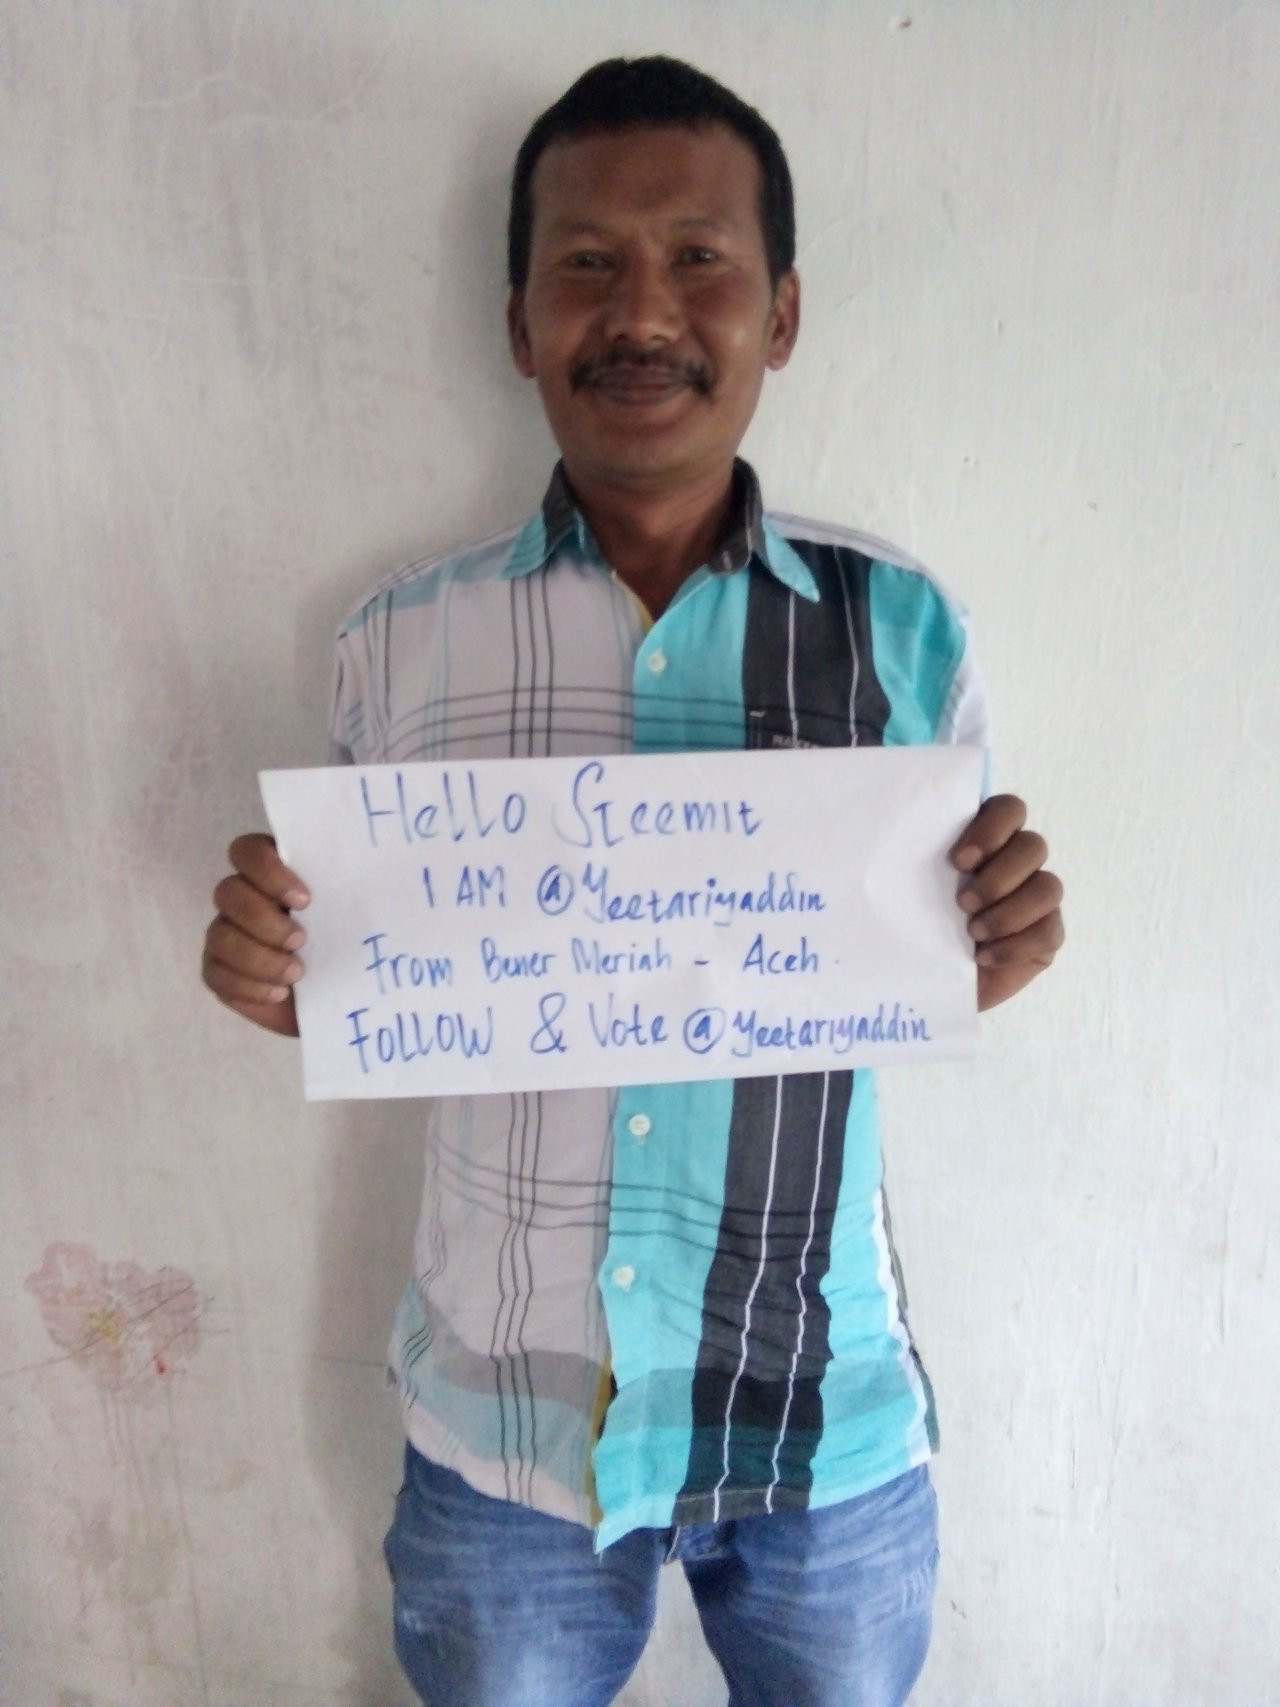 Hello Steemit
I AM @Yeetariyaddin
From Bener Meriah - Aceh.
Follow & Vote @yeetariyaddin